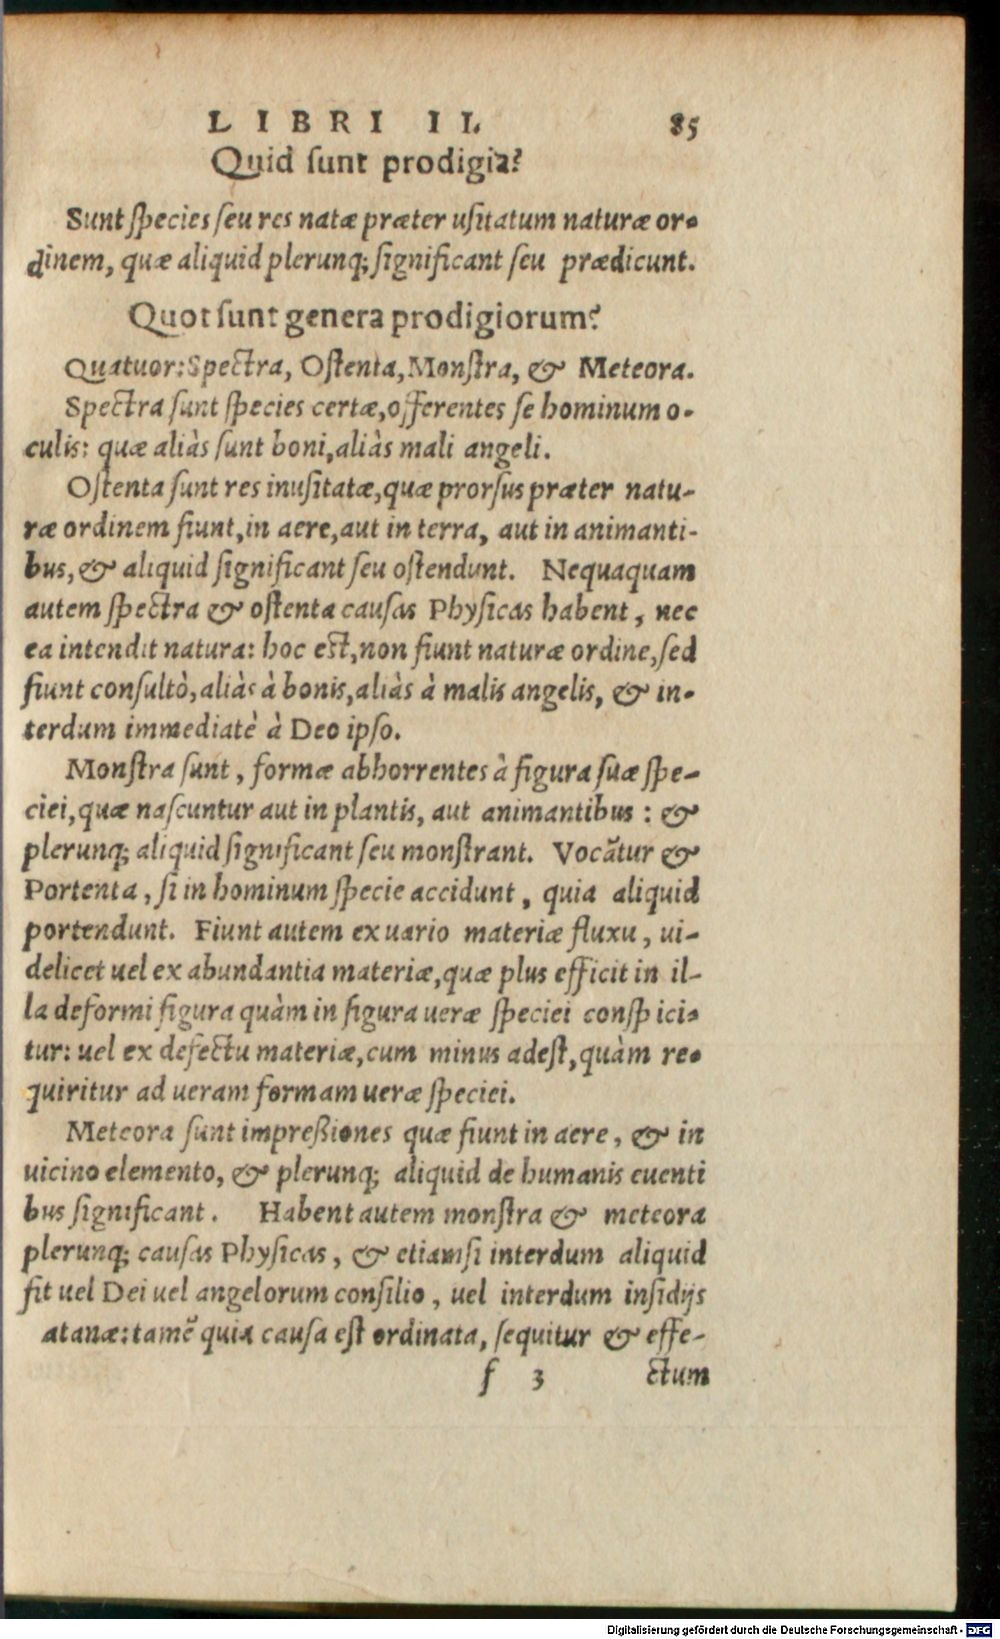 LIBRI II. 85
Quid sunt prodigia?
Sunt species seu res natæ præter usitatum naturæ or-
dinem, quæ aliquid plerunq; significant seu prædicunt.
Quot sunt genera prodigiorum?
Quatuor: Spectra, Ostenta, Monstra, & Meteora.
Spectra sunt species certæ, offerentes se hominum o-
culis: quæ aliàs sunt boni, aliàs mali angeli.
Ostenta sunt res inusitatæ, quæ prorsus præter natu-
ræ ordinem fiunt, in aere, aut in terra, aut in animanti-
bus, & aliquid significant seu ostendunt. Nequaquam
autem spectra & ostenta causas Physicas habent, nec
ea intendit natura: hoc est, non fiunt naturæ ordine, sed
fiunt consultò, aliàs à bonis, aliàs à malis angelis, & in-
terdum immediatè à Deo ipso.
Monstra sunt, formæ abhorrentes à figura suæ spe-
ciei, quæ nascuntur aut in plantis, aut animantibus: &
plerunq; aliquid significant seu monstrant. Vocãtur &
Portenta, si in hominum specie accidunt, quia aliquid
portendunt. Fiunt autem ex uario materiæ fluxu, ui-
delicet uel ex abundantia materiæ, quæ plus efficit in il-
la deformi figura quàm in figura ueræ speciei conspici-
tur: uel ex defectu materiæ, cum minus adest, quàm re-
quiritur ad ueram formam ueræ speciei.
Meteora sunt impreßiones quæ fiunt in aere, & in
uicino elemento, & plerunq; aliquid de humanis euenti
bus significant. Habent autem monstra & meteora
plerunq; causas Physicas, & etiamsi interdum aliquid
fit uel Dei uel angelorum consilio, uel interdum insidijs
atanæ: tamẽ quia causa est ordinata, sequitur & effe-
f 3 ctum
Digitalisierung gefördert durch die Deutsche Forschungsgemeinschaft - DFG